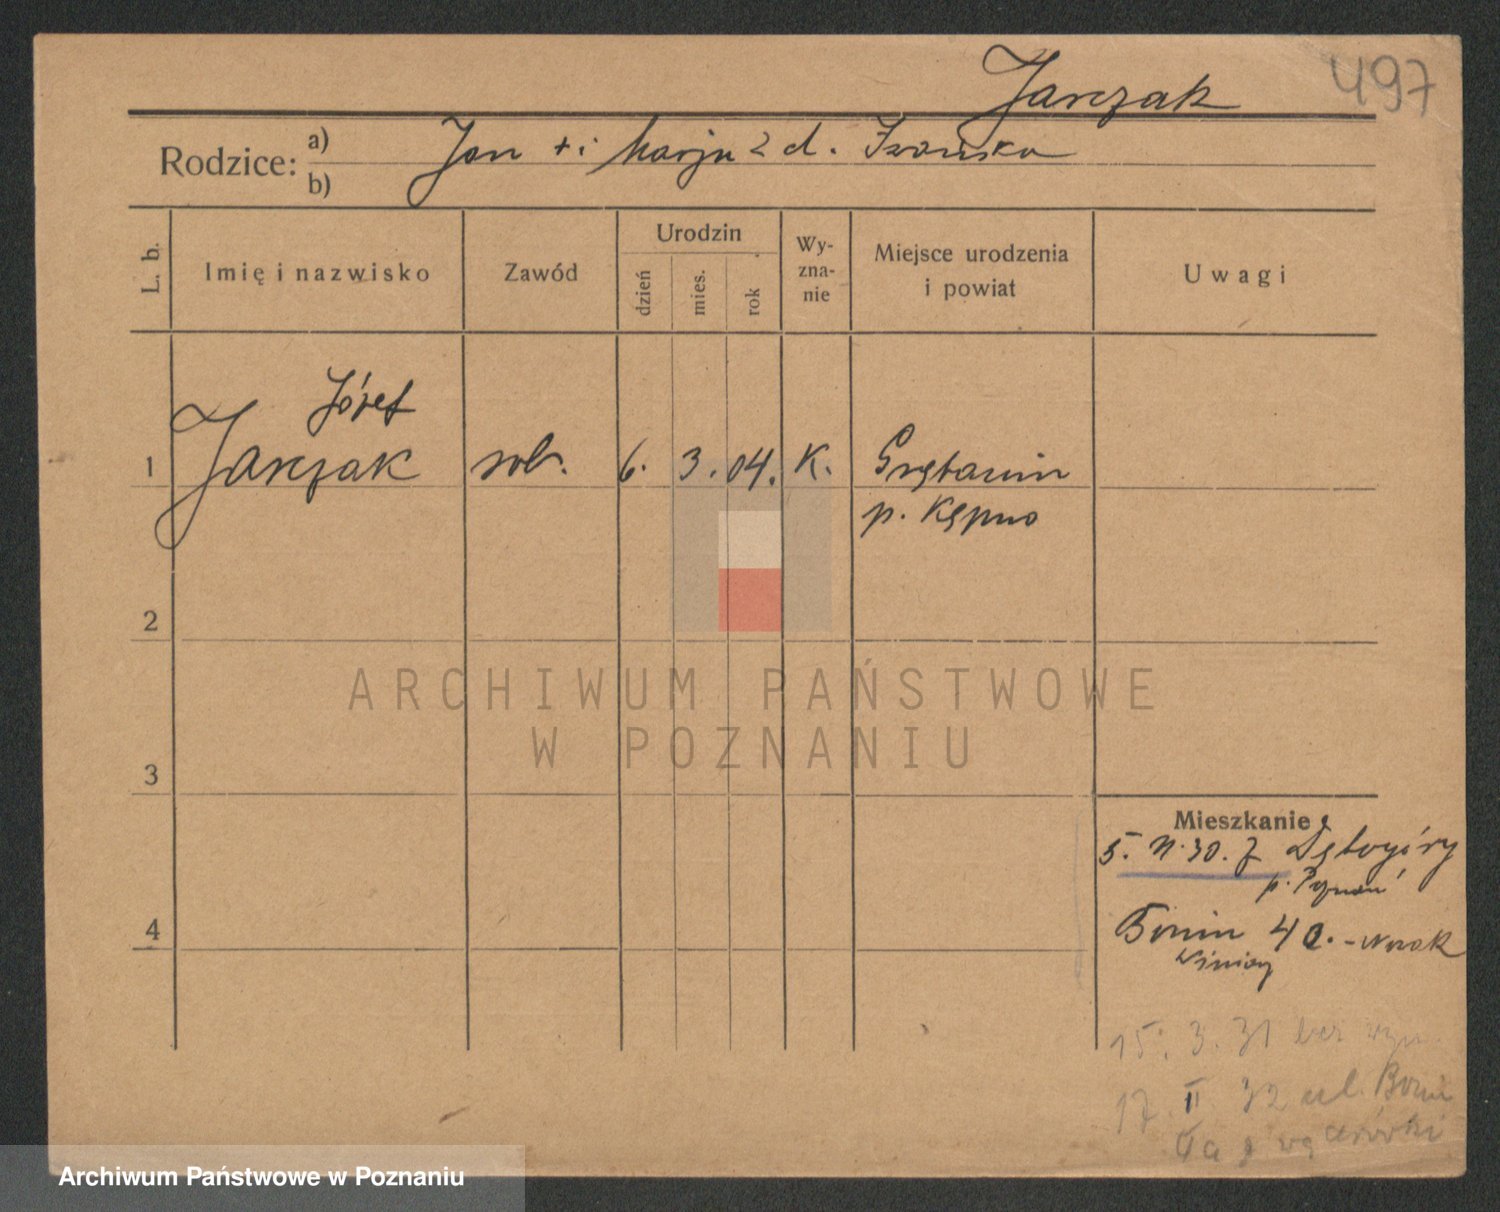 Jarczak
497
Rodzice: a) Jan + i Marja z d.
b)
L. b.
Imię i nazwisko
Zawód
Urodzin
dzień
mies.
rok
Wy-
zna-
nie
Miejsce urodzenia
i powiat
Uwagi
Józef
1 Jarczak rob. 6. 3. 04. K. Grębanin
p. Kępno
2
3
4
Mieszkanie
5. 11. 30. z Dębogóry
p. Poznań
Bonin 4a. - Nowak
Winiary
15. 3. 31 bez wym.
17. II. 32 ul. Bonin
4a z wędrówki
ARCHIWUM PAŃSTWOWE
W POZNANIU
Archiwum Państwowe w Poznaniu